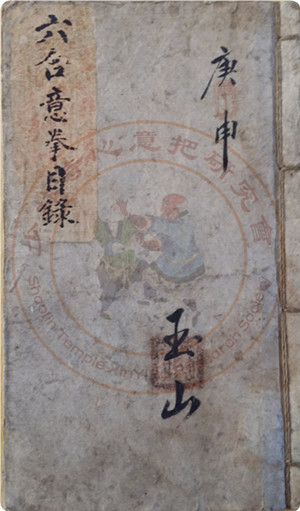 庚申
玉山
六合意拳目錄
心意把研究會
Shaolin Temple Xin Yi